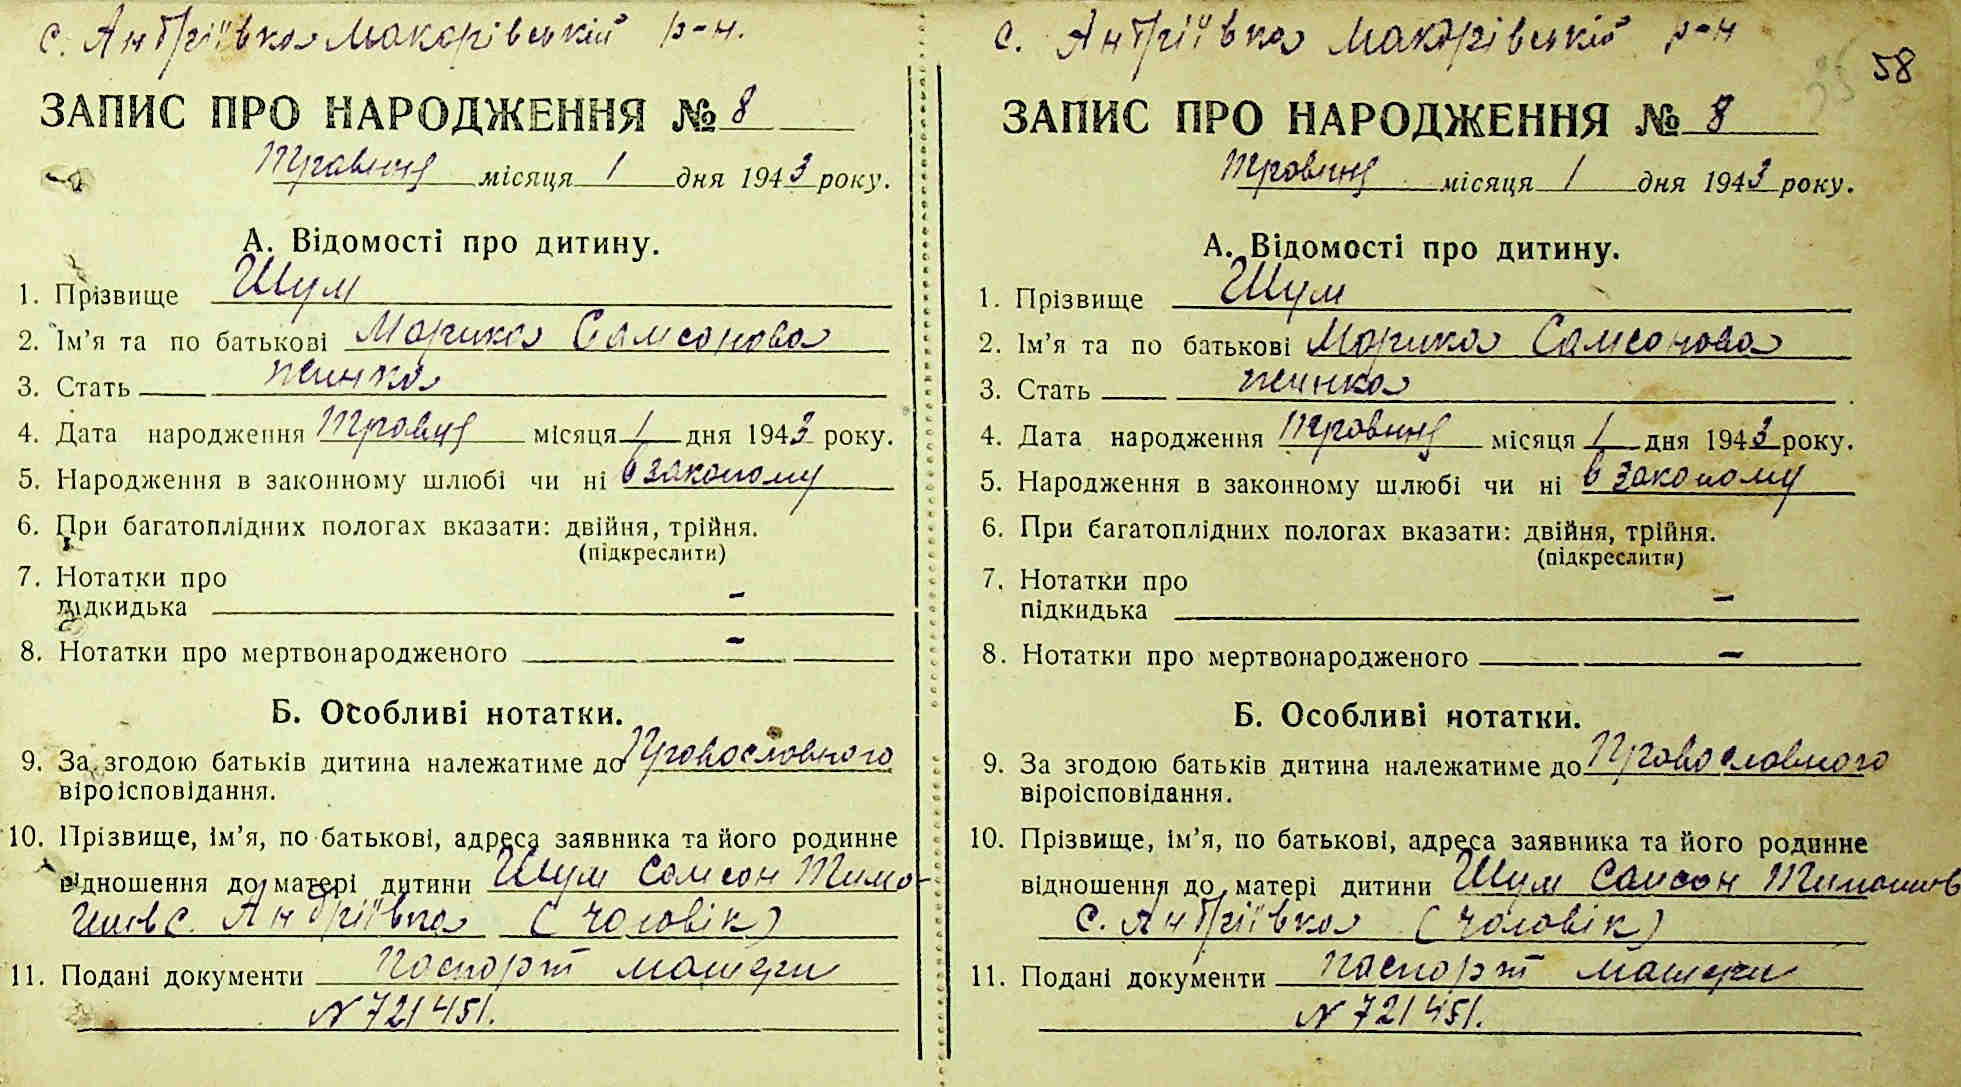 с. Андріївка Макарівській р-н.
ЗАПИС ПРО НАРОДЖЕННЯ № 8
травня місяця 1 дня 1943 року.
А. Відомості про дитину.
1. Прізвище Шум
2. Ім’я та по батькові Марика Самсонова
3. Стать жинка
4. Дата народження травня місяця 1 дня 1943 року.
5. Народження в законному шлюбі чи ні в законому
6. При багатоплідних пологах вказати: двійня, трійня.
(підкреслити)
7. Нотатки про
підкидька –
8. Нотатки про мертвонародженого –
Б. Особливі нотатки.
9. За згодою батьків дитина належатиме до Православного
віроісповідання.
10. Прізвище, ім’я, по батькові, адреса заявника та його родинне
відношення до матері дитини Шум Самсон Тимо-
с. Андріївка (чоловік)
11. Подані документи паспорт матери
N 721451.
с. Андріївка Макарівській р-н
58
ЗАПИС ПРО НАРОДЖЕННЯ № 8
травня місяця 1 дня 1943 року.
А. Відомості про дитину.
1. Прізвище Шум
2. Ім’я та по батькові Марика Самсонова
3. Стать жинка
4. Дата народження травня місяця 1 дня 1943 року.
5. Народження в законному шлюбі чи ні в законому
6. При багатоплідних пологах вказати: двійня, трійня.
(підкреслити)
7. Нотатки про
підкидька –
8. Нотатки про мертвонародженого –
Б. Особливі нотатки.
9. За згодою батьків дитина належатиме до Православного
віроісповідання.
10. Прізвище, ім’я, по батькові, адреса заявника та його родинне
відношення до матері дитини Шум Самсон
с. Андріївка (чоловік)
11. Подані документи паспорт матери
N 721451.